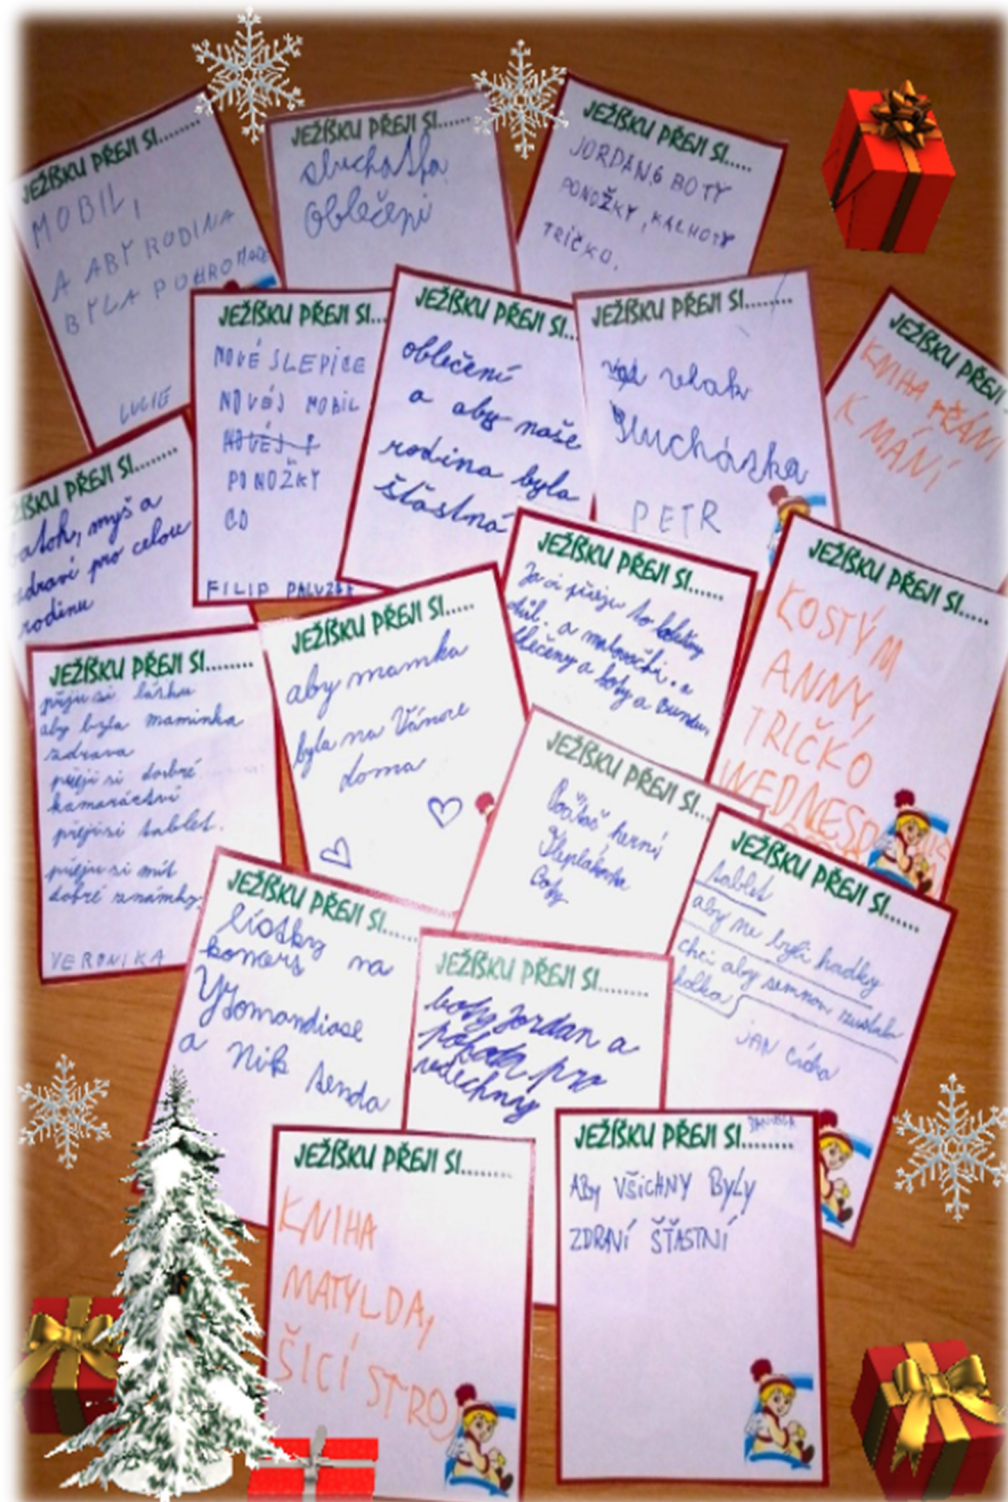 JEŽÍŠKU PŘEJI SI........
MOBIL,
A ABY RODINA
BYLA POHROMADĚ
LUCIE
JEŽÍŠKU PŘEJI SI......
sluchátka
oblečení
JEŽÍŠKU PŘEJI SI.....
JORDAN,6 BOTY
PONOŽKY, KALHOTY
TRIČKO.
JEŽÍŠKU PŘEJI SI...
NOVÉ SLEPICE
NOVÉJ MOBIL
NOVÉJ
PONOŽKY
CD
FILIP
JEŽÍŠKU PŘEJI SI...
oblečení
a aby naše
rodina byla
šťastná
JEŽÍŠKU PŘEJI SI........
vlak
sluchátka
PETR
JEŽÍŠKU PŘEJI
KNIHA
K MÁNÍ
PŘEJI SI........
myš a
zdraví pro celou
rodinu
JEŽÍŠKU PŘEJI SI......
Já si přeju to
a
a boty a bundu
JEŽÍŠKU PŘEJI SI......
KOSTÝM
ANNY,
TRIČKO
WEDNESD
JEŽÍŠKU PŘEJI SI........
přeju si lásku
aby byla maminka
zdrava
přeji si dobré
kamarádství
přeji si tablet.
přeju si mít
dobré známky.
VERONIKA
JEŽÍŠKU PŘEJI SI.....
aby mamka
byla na Vánoce
doma
JEŽÍŠKU PŘEJI SI...
herní
boty
JEŽÍŠKU PŘEJI SI......
tablet
aby ne byli hadky
chci aby semnou
holka
JAN
JEŽÍŠKU PŘEJI SI......
lístky
koncert na
a Nik Tendo
JEŽÍŠKU PŘEJI SI........
boty Jordan a
pro
všechny
JEŽÍŠKU PŘEJI SI........
KNIHA
MATYLDA,
ŠICÍ STROJ
JEŽÍŠKU PŘEJI SI........
ABY VŠICHNY BYLY
ZDRAVÍ ŠŤASTNÍ